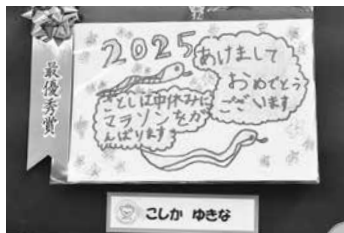 最優秀賞
2025
あけまして
おめでとう
ございます
ことしは中休みに
マラソンをが
んばります
こしか ゆきな